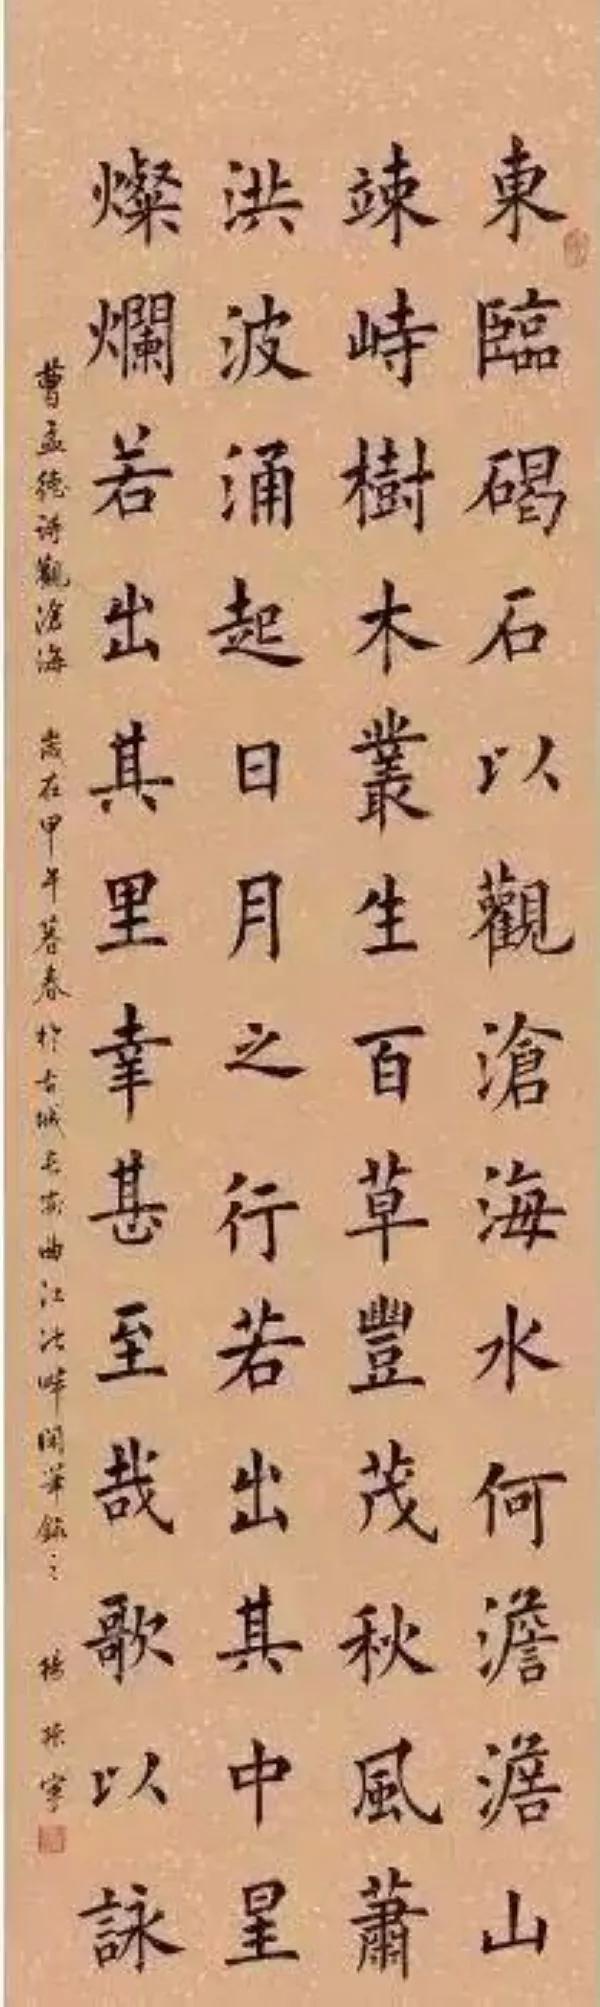 東臨碣石以觀滄海水何澹澹山
竦峙樹木叢生百草豐茂秋風蕭
洪波涌起日月之行若出其中星
燦爛若出其里幸甚至哉歌以詠
曹孟德詩觀滄海 歲在甲午暮春於古城長安曲江池畔閑筆錄之